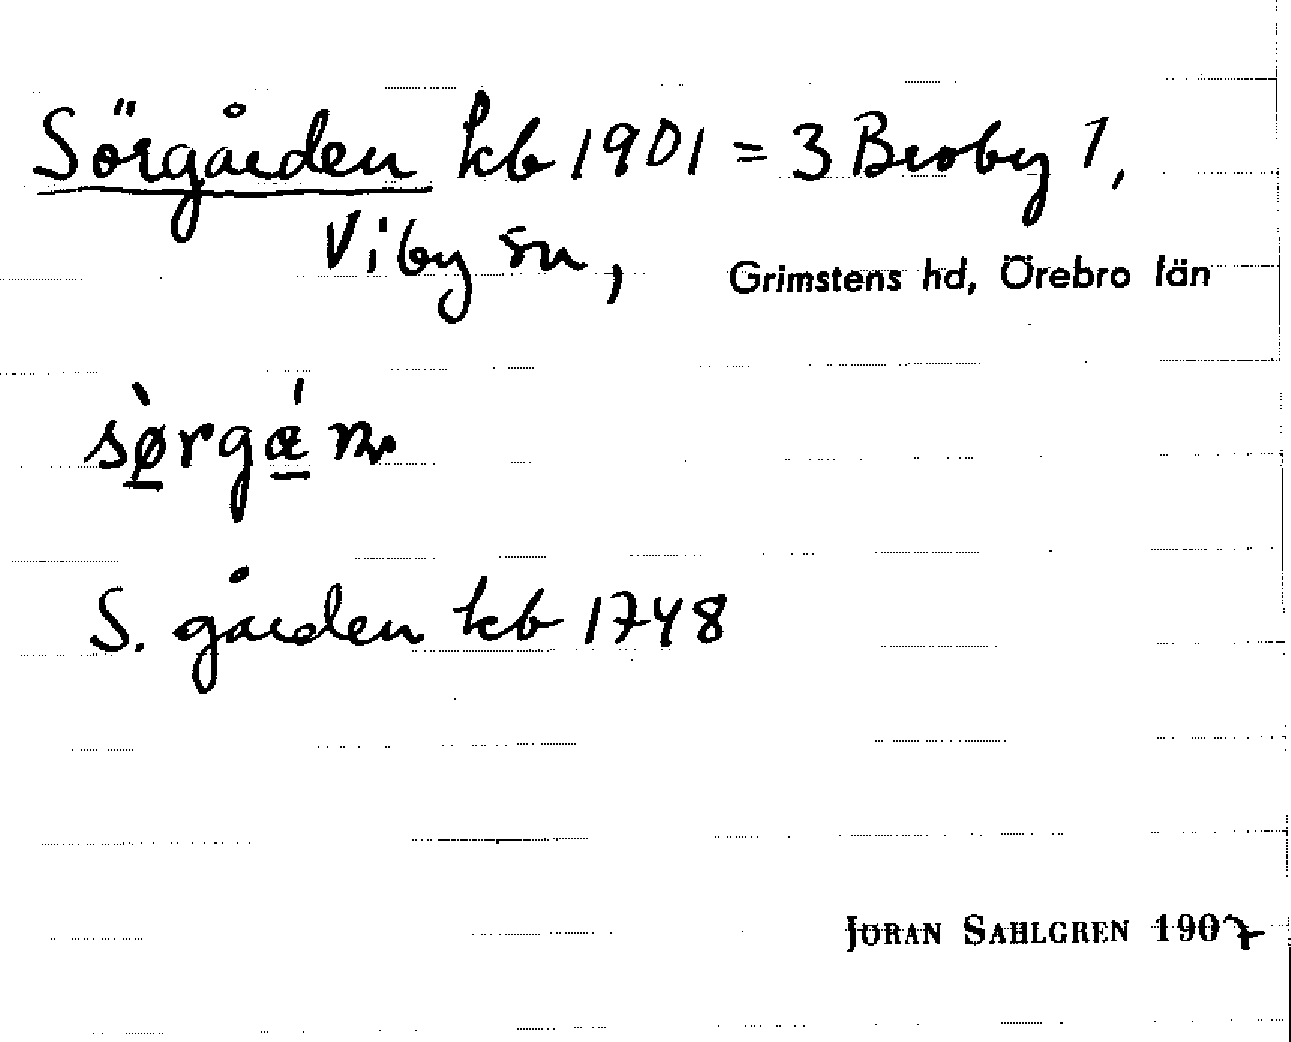 Sörgården kb 1901 = 3 Broby 1,
Viby sn,
Grimstens hd, Örebro län
S. gården kb 1748
JÖRAN SAHLGREN 1907